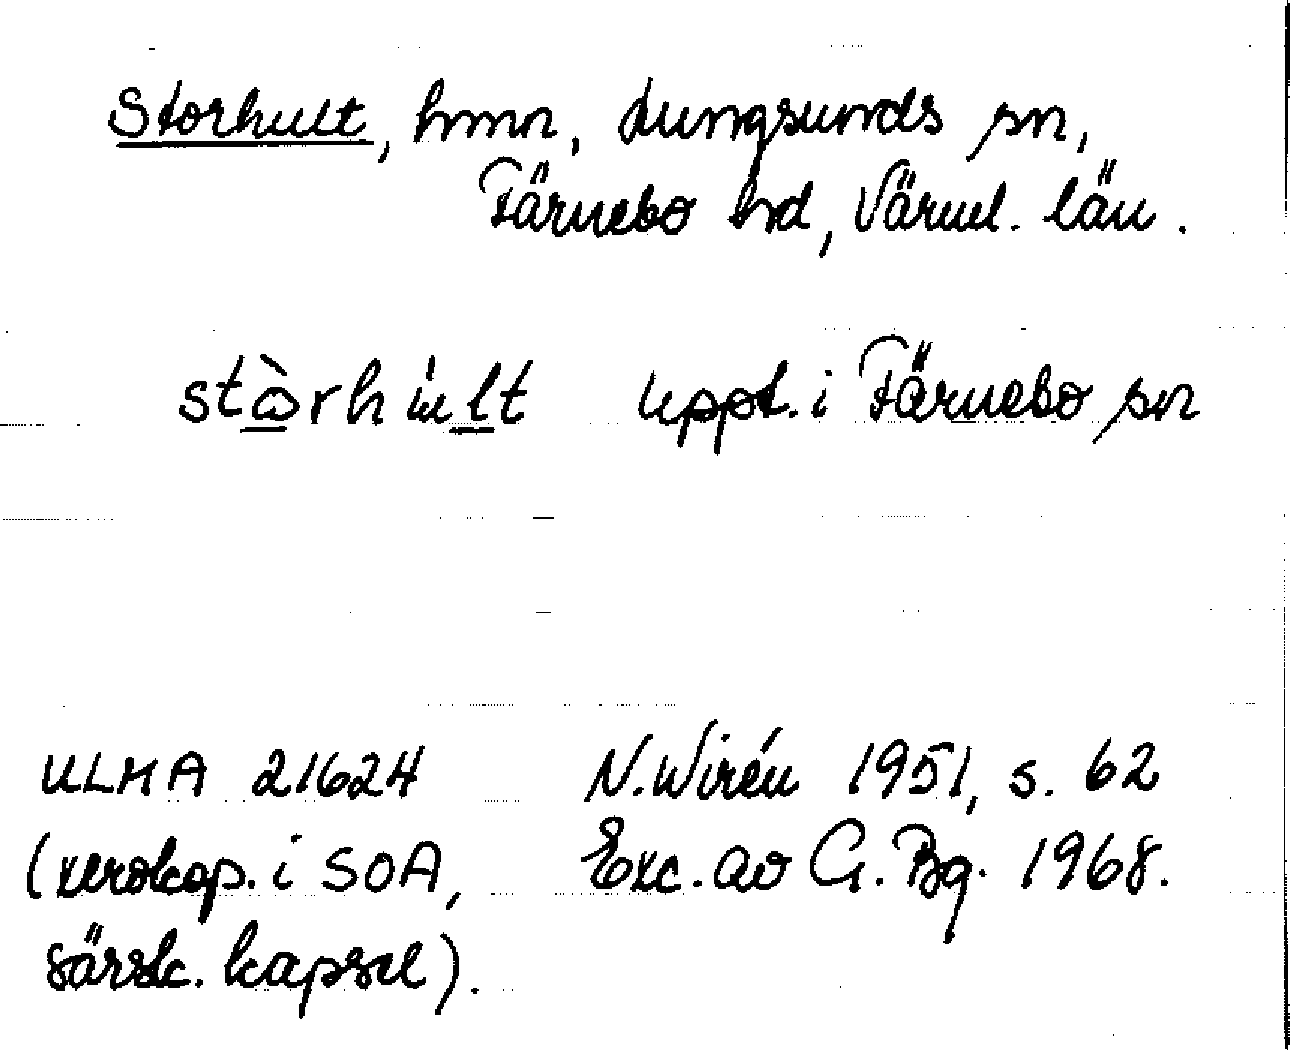 Storhult, hmn, Lungsunds sn,
Färnebo hd, Värml. län.
stòrhult uppt. i Färnebo sn
ULMA 21624 N. Wirén 1951, s. 62
(xerokop. i SOA, Exc. av G. Bg. 1968.
särsk. kapsel).